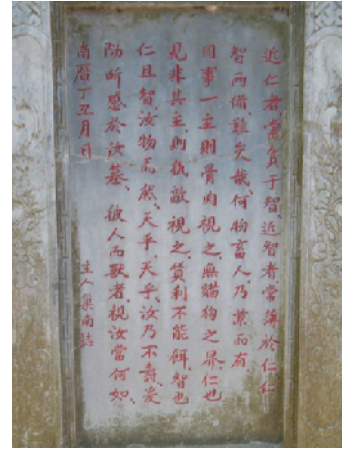 近仁者常負于智、近智者常薄於仁、仁
智兩備難矣哉、何物畜人乃兼而有
同事一主則骨肉視之、無貓狗之界、仁也
見非其主、則仇敵視之、貨利不能餌、智也
仁且智、汝物居然、天乎、天乎、汝乃不壽、爰
所感於汝墓、彼人而獸者、視汝當何如、
南曆丁丑月日
主人葉南誌